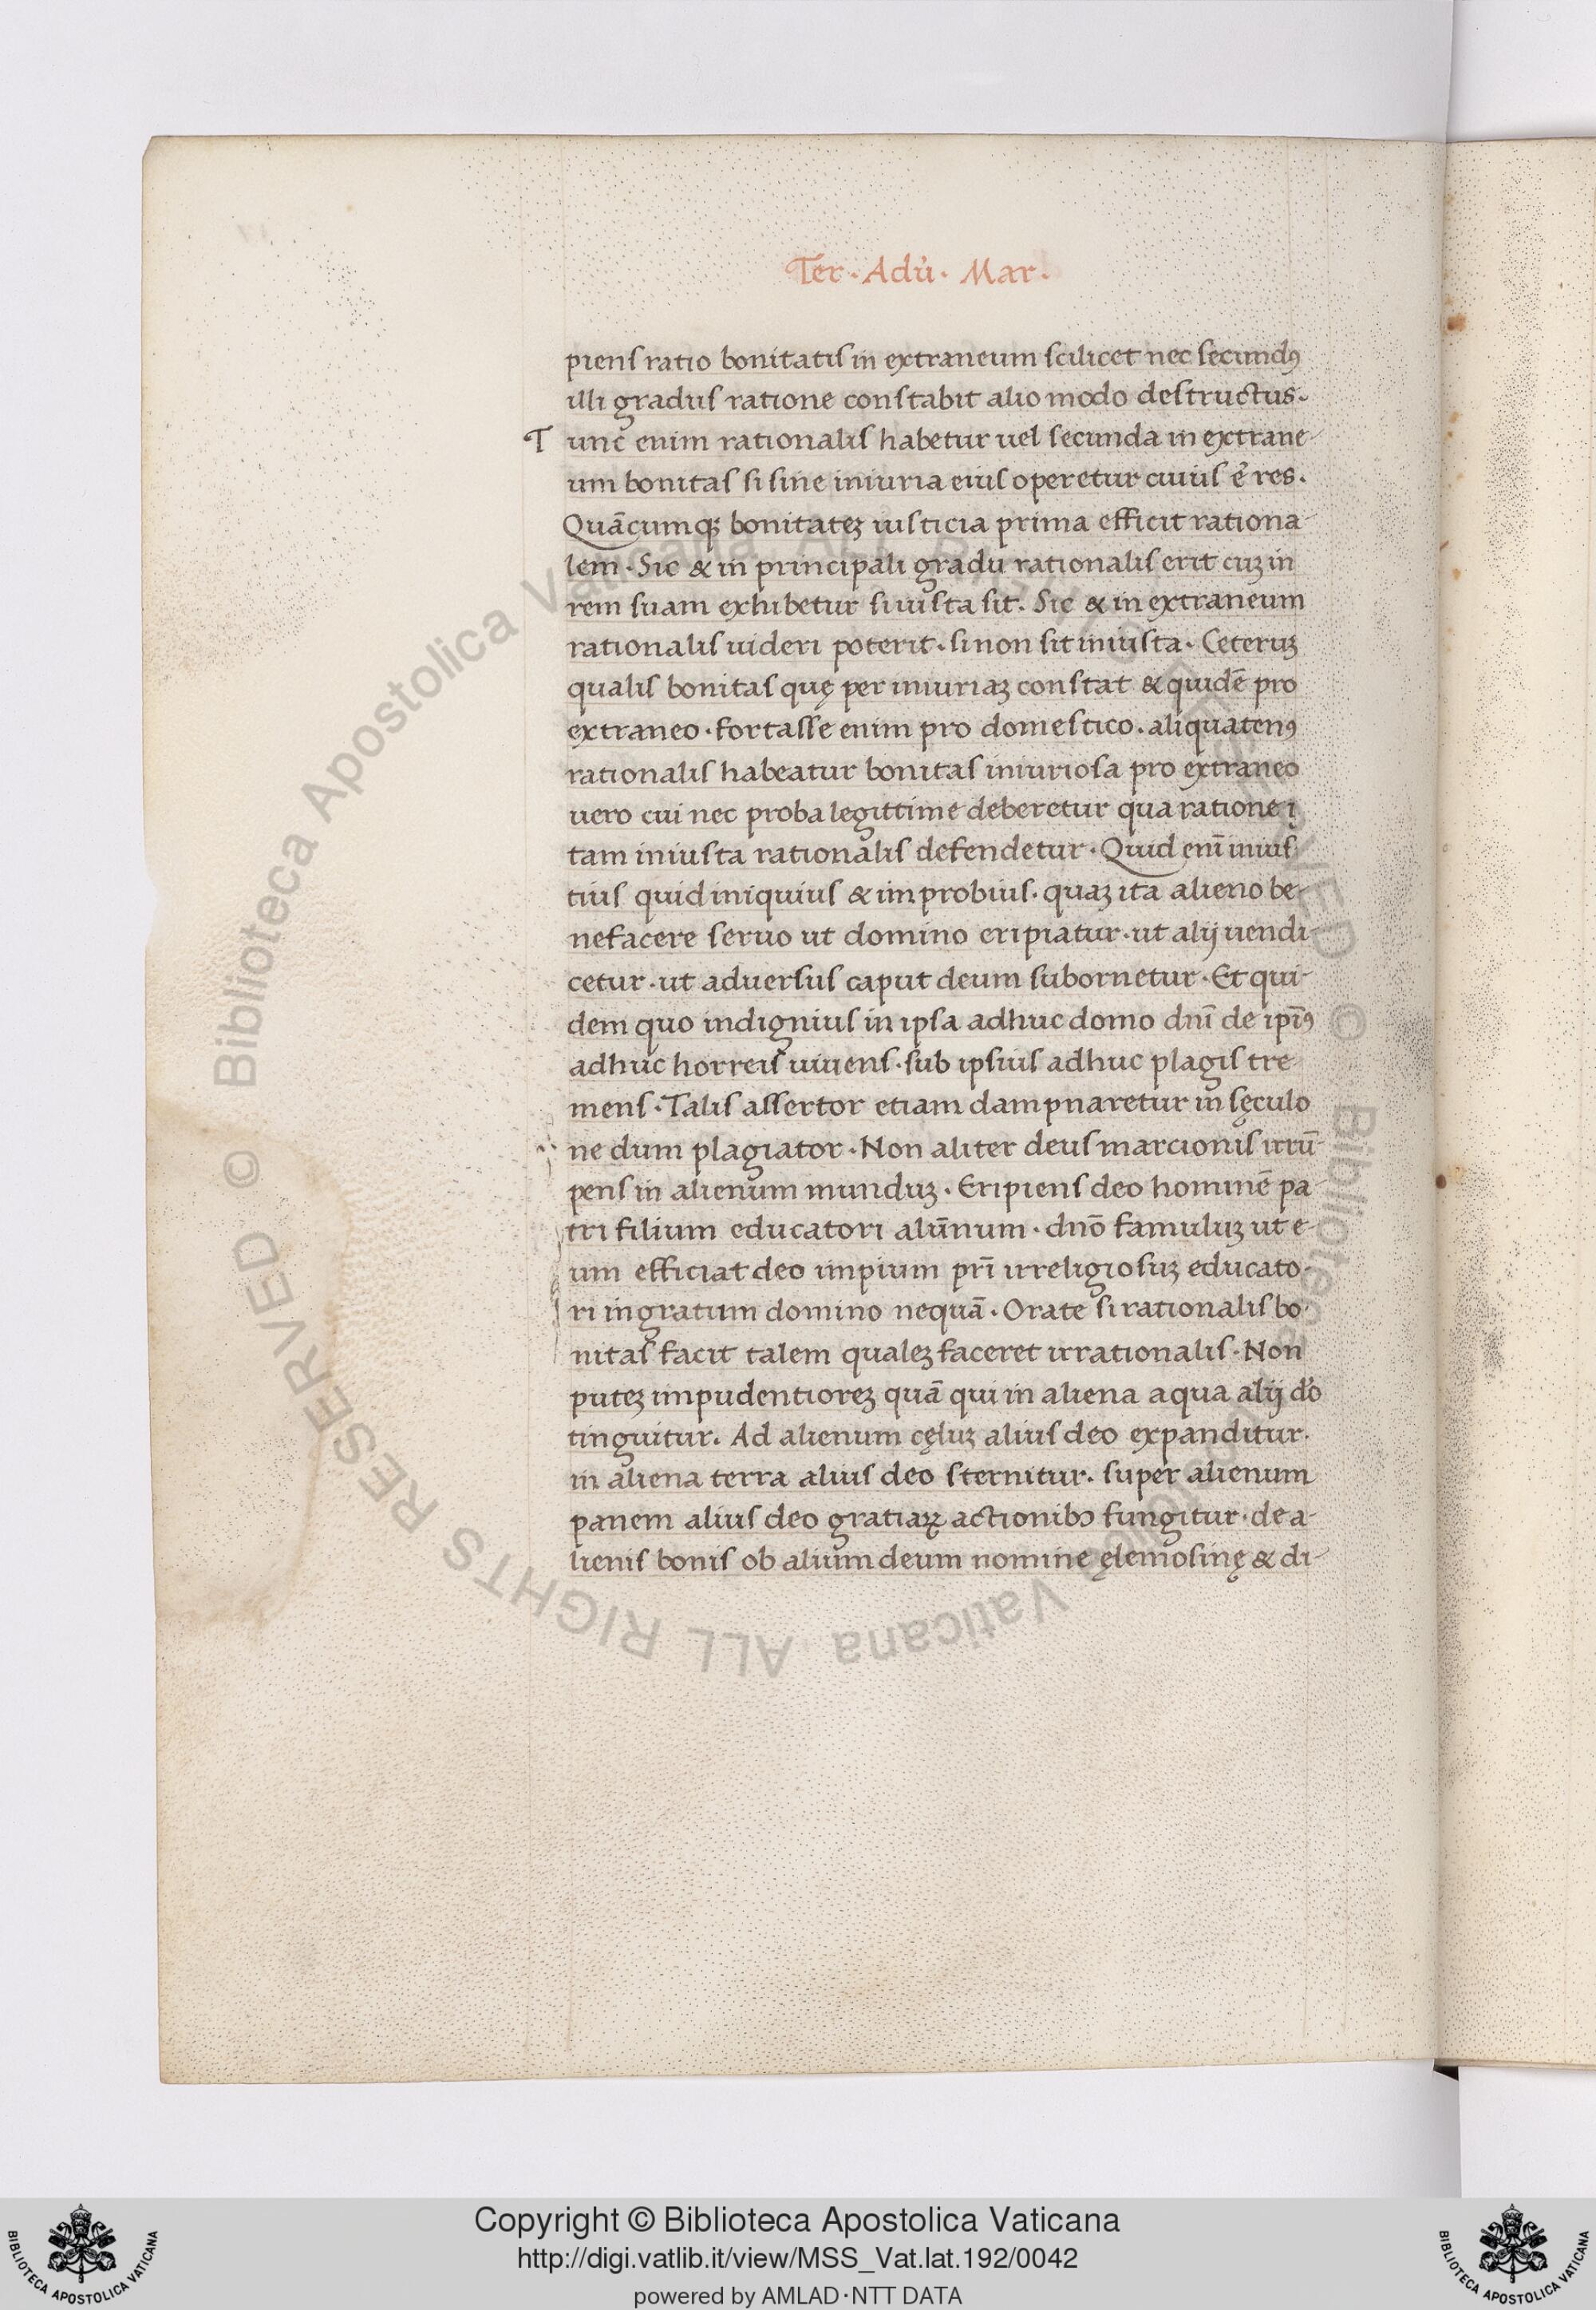 Ter · Adu̓ · Mar ·
piens ratio bonitatis in extraneum scilicet nec secundꝰ
illi gradus ratione constabit alio modo destructus ·
Tunc enim rationalis habetur uel secunda in extrane-
um bonitas si sine iniuria eius operetur cuius ē res ·
Quācumqꝫ bonitateꝫ iusticia prima efficit rationa-
lem · Sic & in principali gradu rationalis erit cuꝫ in
rem suam exhibetur si iusta sit · Sic & in extraneum
rationalis uideri poterit · si non sit iniusta · Ceteruꝫ
qualis bonitas quę per iniuriaꝫ constat & quidē pro
extraneo · fortasse enim pro domestico · aliquatenꝰ
rationalis habeatur bonitas iniuriosa pro extraneo
uero cui nec proba legittime deberetur qua ratione
tam iniusta rationalis defendetur · Quid enī inius
tius quid iniquius & improbius · quaꝫ ita alieno be-
nefacere seruo ut domino eripiatur · ut alij uendi-
cetur · ut aduersus caput deum subornetur · Et qui-
dem quo indignius in ipsa adhuc domo dnī de ipīꝰ
adhuc horreis uiuens · sub ipsius adhuc plagis tre-
mens · Talis assertor etiam dampnaretur in sęculo
ne dum plagiator · Non aliter deus marcionis irrū-
pens in alienum munduꝫ · Eripiens deo hominē pa-
tri filium educatori alūnum · dnō famuluꝫ ut e-
um efficiat deo impium prī irreligiosuꝫ educato-
ri ingratum domino nequā · Orate si rationalis bo-
nitas facit talem qualeꝫ faceret irrationalis · Non
puteꝫ impudentioreꝫ quā qui in aliena aqua alij do
tinguitur · Ad alienum cęluꝫ alius deo expanditur ·
in aliena terra alius deo sternitur · super alienum
panem alius deo gratiaꝝ actionibꝫ fungitur · de a-
lienis bonis ob alium deum nomine ęlemosinę & di-
Copyright © Biblioteca Apostolica Vaticana
http://digi.vatlib.it/view/MSS_Vat.lat.192/0042
powered by AMLAD·NTT DATA